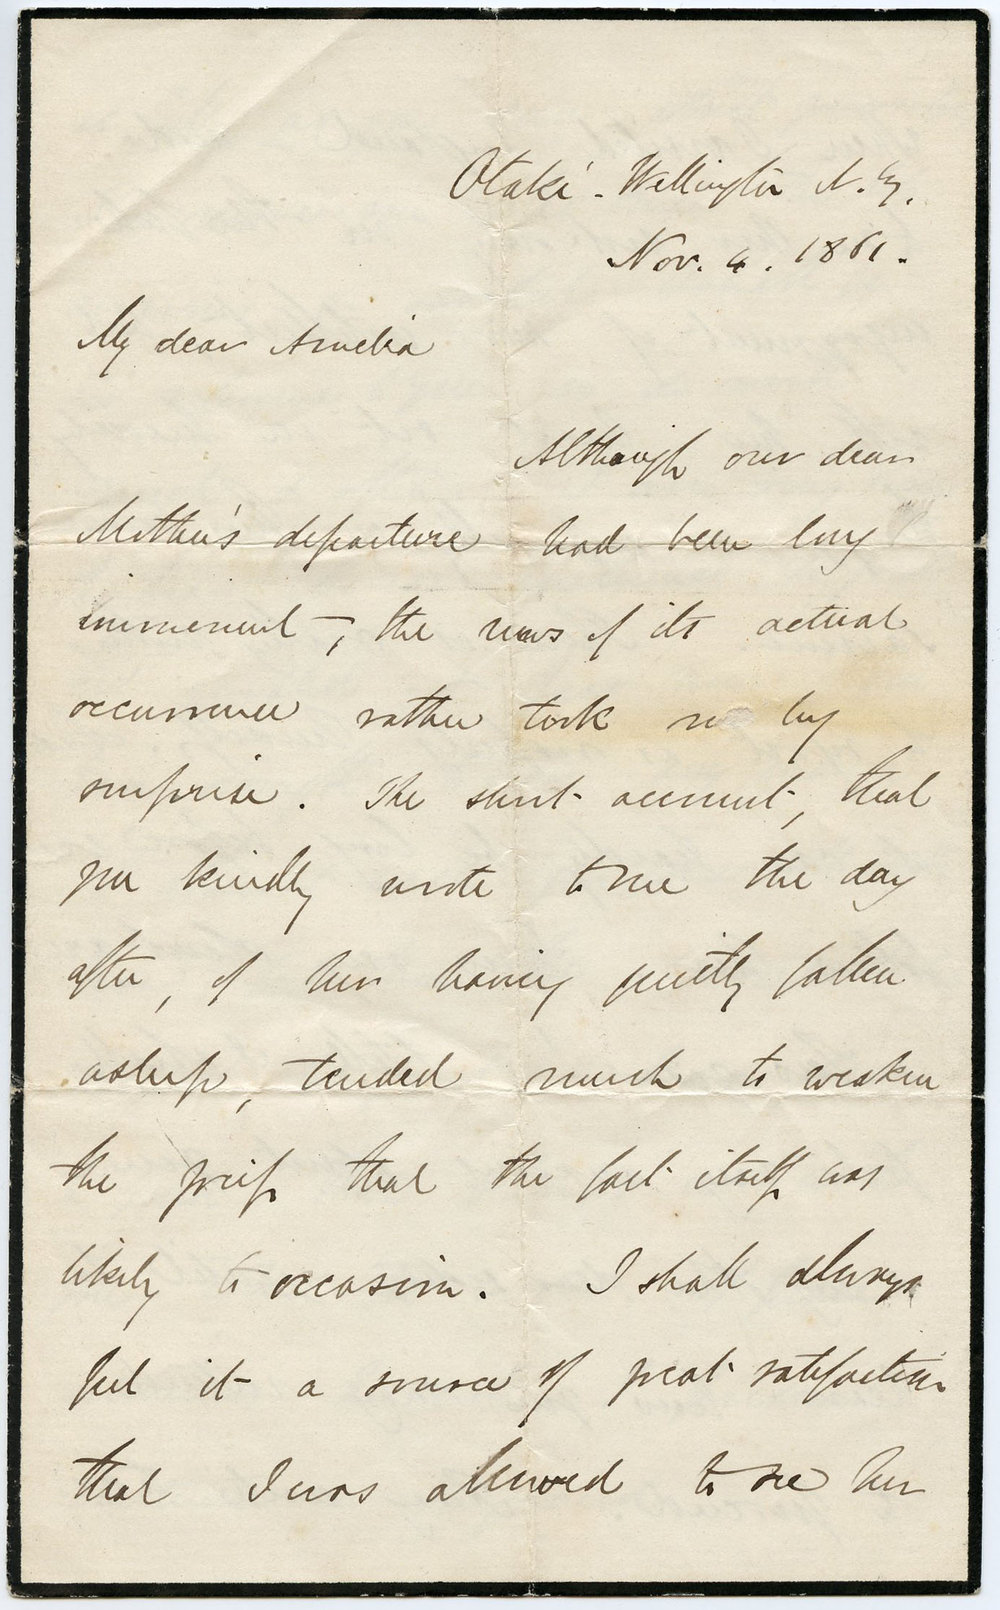 Otaki - Wellington N.Z.
Nov. 4. 1861.
My dear Amelia
Although our dear
Mother's departure had been long
imminent, the news of its actual
occurrence rather took me by
surprise. The short account, that
you kindly wrote to me the day
after, of her having quietly fallen
asleep, tended much to weaken
the grief that the fact itself was
likely to occasion. I shall always
feel it a source of great satisfaction
that I was allowed to see her